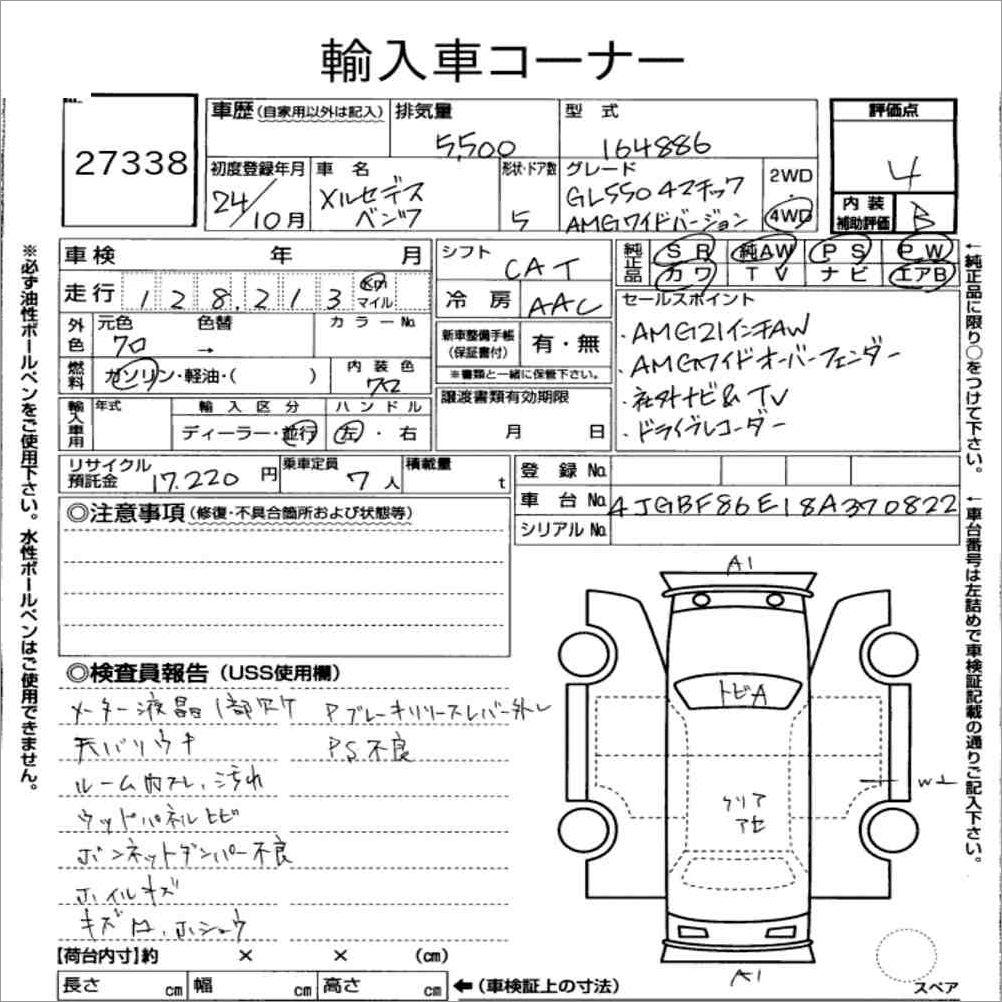 輸入車コーナー
27338
車歴 (自家用以外は記入)
排気量
5,500
型式
164886
評価点
4
初度登録年月
24/10月
車名
メルセデス
ベンツ
形状・ドア数
5
グレード
GL550 4マチック
AMGワイドバージョン
2WD
4WD
内装
補助評価
B
車検 年 月
シフト
CAT
純正品
SR 純AW PS PW
カワ TV ナビ エアB
走行 128,213 Km
マイル
冷房
AAC
セールスポイント
・AMG21インチAW
・AMGワイドオーバーフェンダー
・社外ナビ&TV
・ドライブレコーダー
外色
元色 色替 カラーNo.
クロ →
新車整備手帳
(保証書付)
有・無
※書類と一緒に保管下さい。
燃料
ガソリン・軽油・( )
内装色
クロ
譲渡書類有効期限
月 日
輸入車用
年式
輸入区分
ハンドル
ディーラー・並行
左・右
リサイクル
預託金
17,220円
乗車定員
7人
積載量
t
登録No.
車台No.
4JGBF86E18A370822
シリアルNo.
◎注意事項 (修復・不具合箇所および状態等)
◎検査員報告 (USS使用欄)
メーター液晶1部カケ Pブレーキリリースレバー外レ
天バリウキ PS不良
ルーム内スレ、汚れ
ウッドパネルヒビ
ボンネットダンパー不良
ホイルキズ
キズ ホシュウ
A1
トビA
クリア
アセ
W1
A1
スペア
【荷台内寸】約 × × (cm)
長さ cm 幅 cm 高さ cm
←(車検証上の寸法)
※必ず油性ボールペンをご使用下さい。水性ボールペンはご使用できません。
←純正品に限り○をつけて下さい。
←車台番号は左詰めで車検証記載の通りご記入下さい。